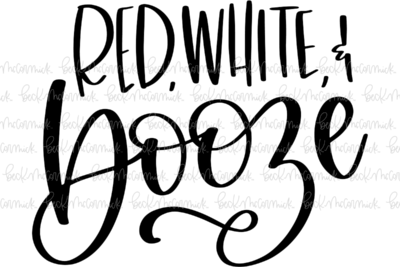 RED, WHITE, &
booze